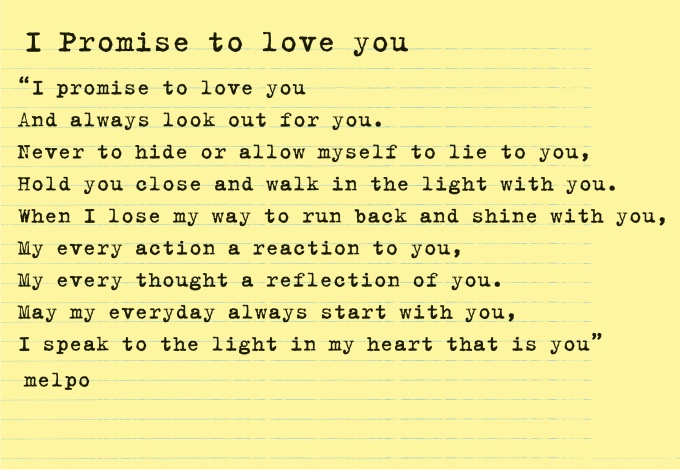 I Promise to love you
“I promise to love you
And always look out for you.
Never to hide or allow myself to lie to you,
Hold you close and walk in the light with you.
When I lose my way to run back and shine with you,
My every action a reaction to you,
My every thought a reflection of you.
May my everyday always start with you,
I speak to the light in my heart that is you”
melpo